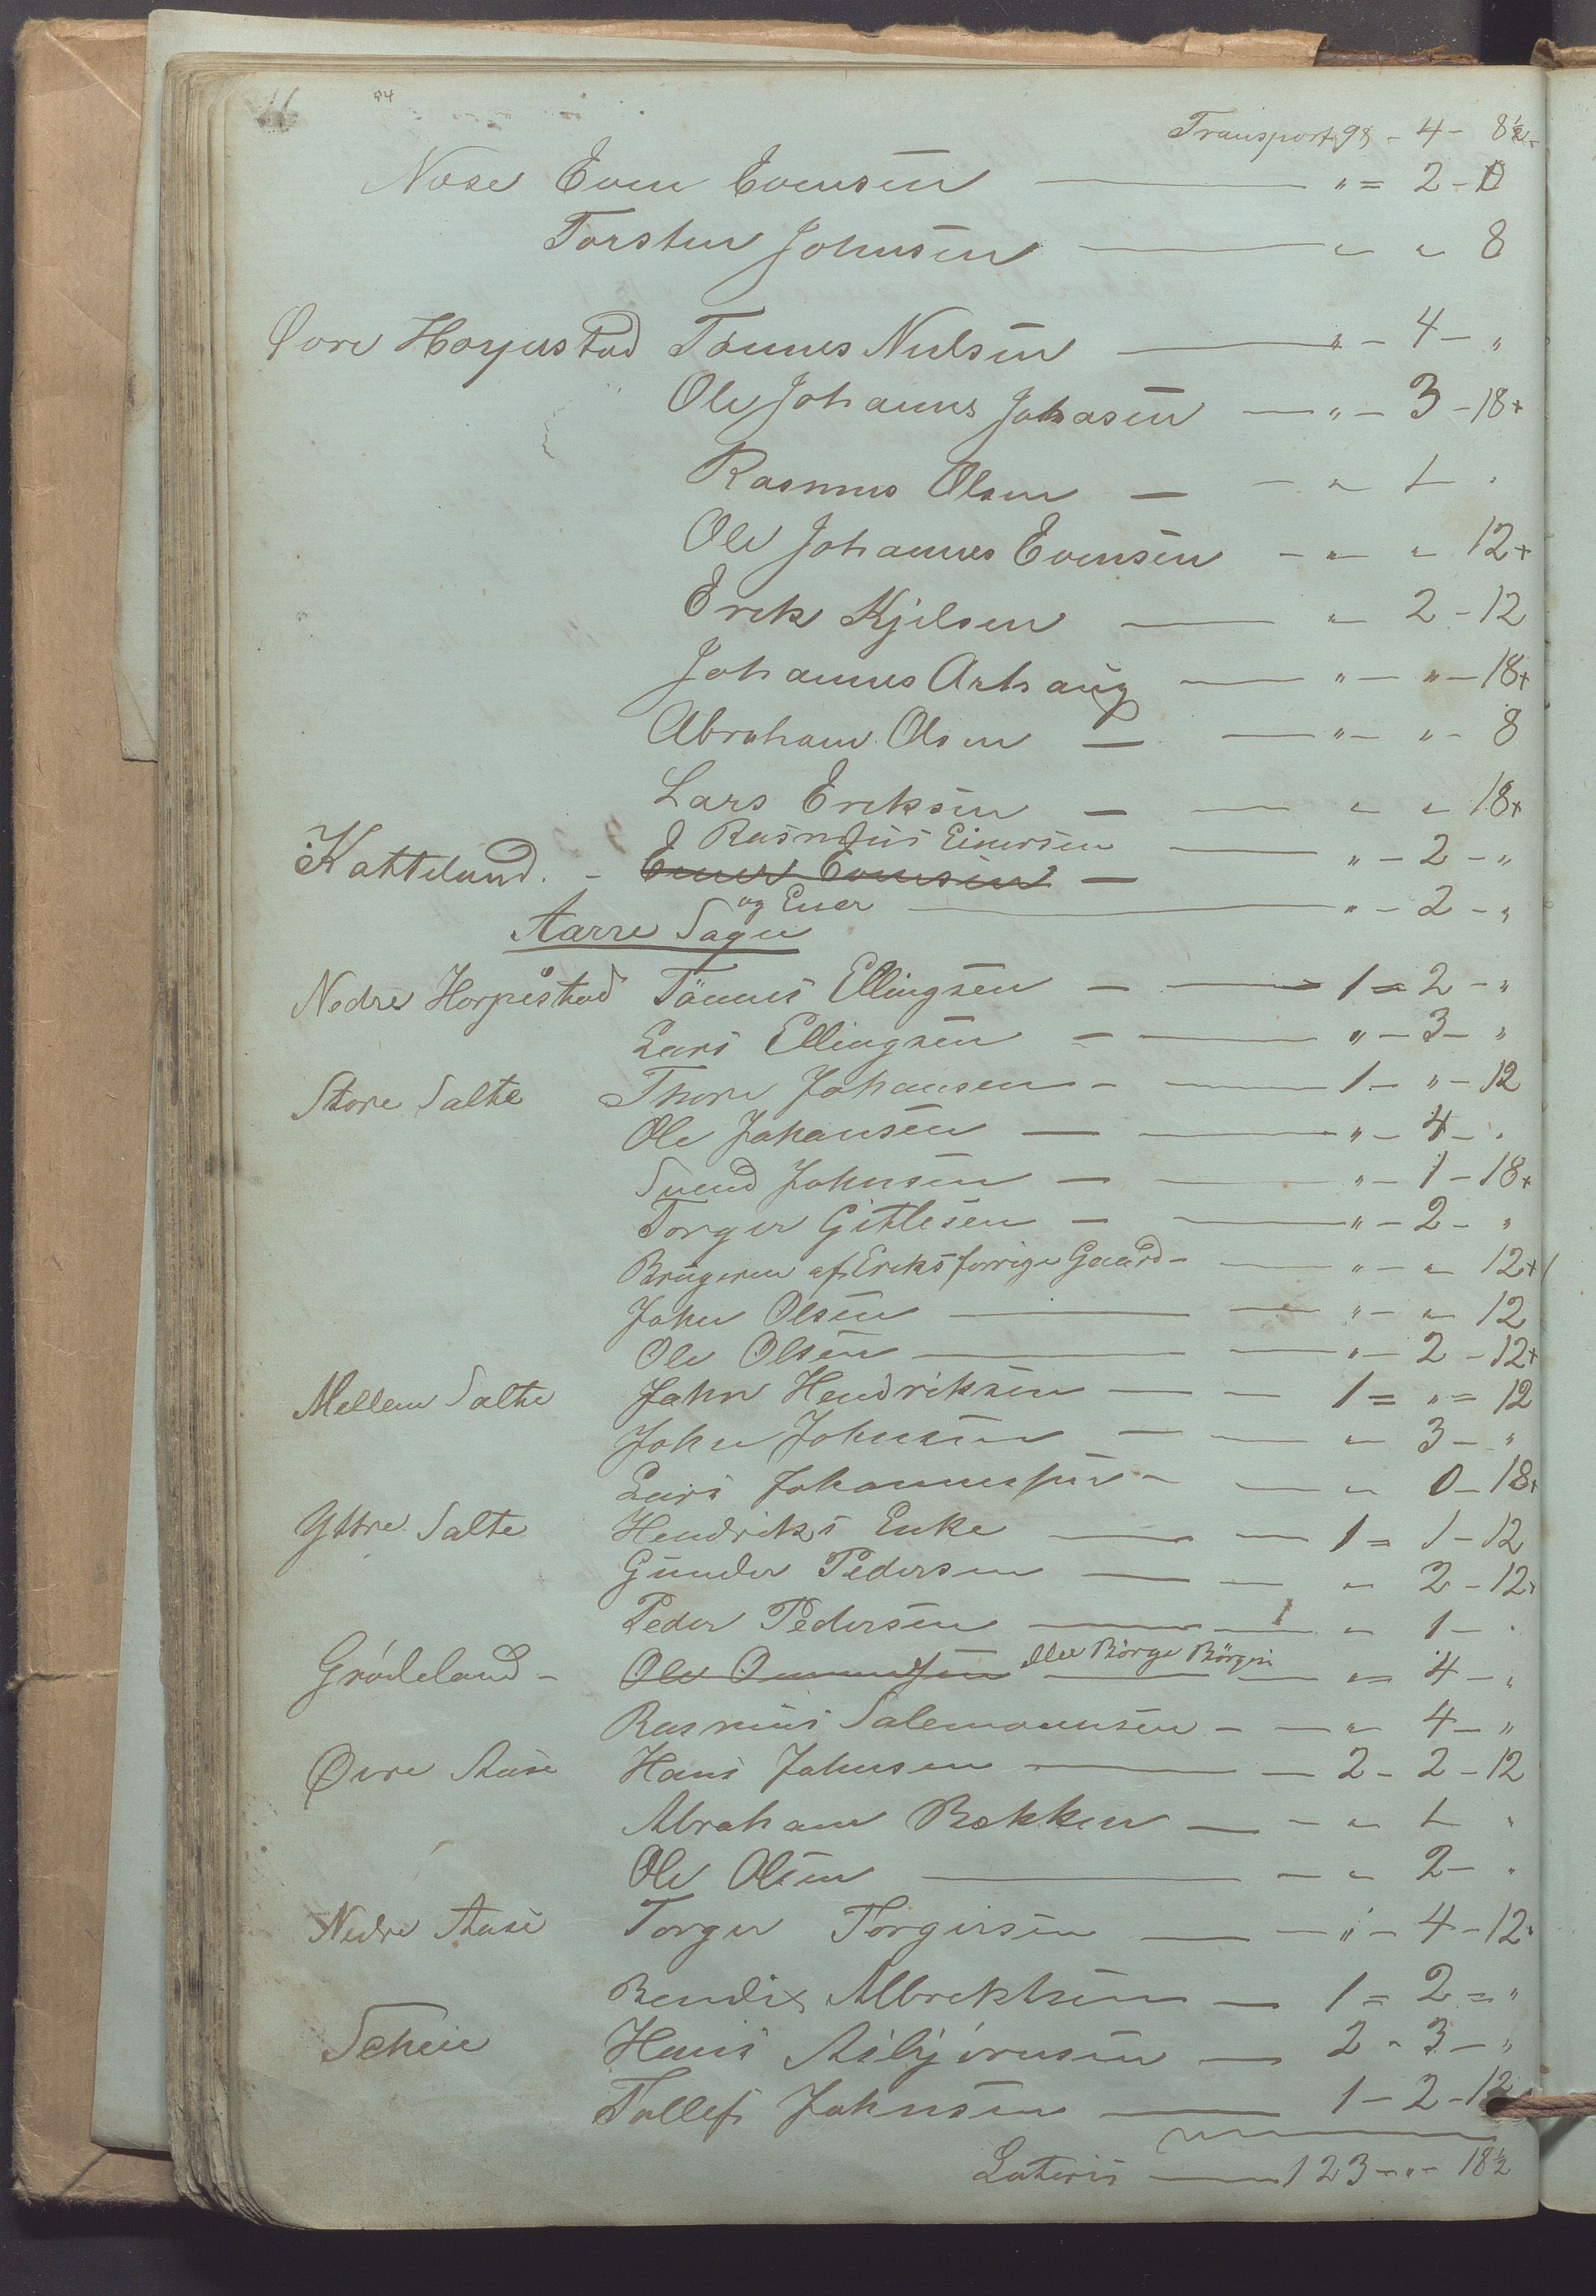 Transport 98 - 4 - 8½
Nose Even Evensen — " = 2 - 0
Torsten Johnsen — " " 8
Övre Hoyustad Tönnes Nielsen — " - 4 - "
Ole Johannes Johasen — " - 3 - 18+
Rasmus Olsen — - " 1 "
Ole Johannes Evensen - " - " 12+
Erik Kjelsen — " 2 - 12
Johannes Arhaug — " - " - 18+
Abraham Olsen — " - " - 8
Lars Eriksen — — " " 18+
Rasmus Einersen
Katteland. - Einer Evensen — " - 2 - "
og Einer — " - 2 - "
Aarre Sogn
Nedre Horpestad Tönnes Ellingsen — 1 = 2 - "
Lars Ellingsen — " - 3 - "
Store Salte Thore Johansen - — 1 - " - 12
Ole Johansen — — " - 4 - "
Svend Johnsen — " - 1 - 18+
Torger Gitlesen — " - 2 - "
Brugeren af Eriks forrige Gaard - — " - " 12+
John Olsen — — " - " 12
Ole Olsen — — " - 2 - 12+
Mellem Salte John Hendriksen — - 1 = " = 12
John Johnsen — — " 3 - "
Lars Johannessen - — " 0 - 18+
Yttre Salte Hendriks Enke — — 1 = 1 - 12
Gunder Pedersen — — " 2 - 12+
Peder Pedersen — 1 — " 1 - "
eller Börge Börgesen
Grödeland - Ole Ommundsen — " = 4 - "
Rasmus Salemonsen - — " 4 - "
Övre Aase Hans Johnsen — — 2 - 2 - 12
Abraham Bekken — - " 1 "
Ole Olsen — - " 2 - "
Nedre Aase Torger Torgersen — - " - 4 - 12
Bendix Albrektsen — 1 = 2 = "
Scheie Hans Asbjörnsen — 2 - 3 - "
Tollef Johnsen — 1 - 2 - 12
Lateris — 123 - " - 18½